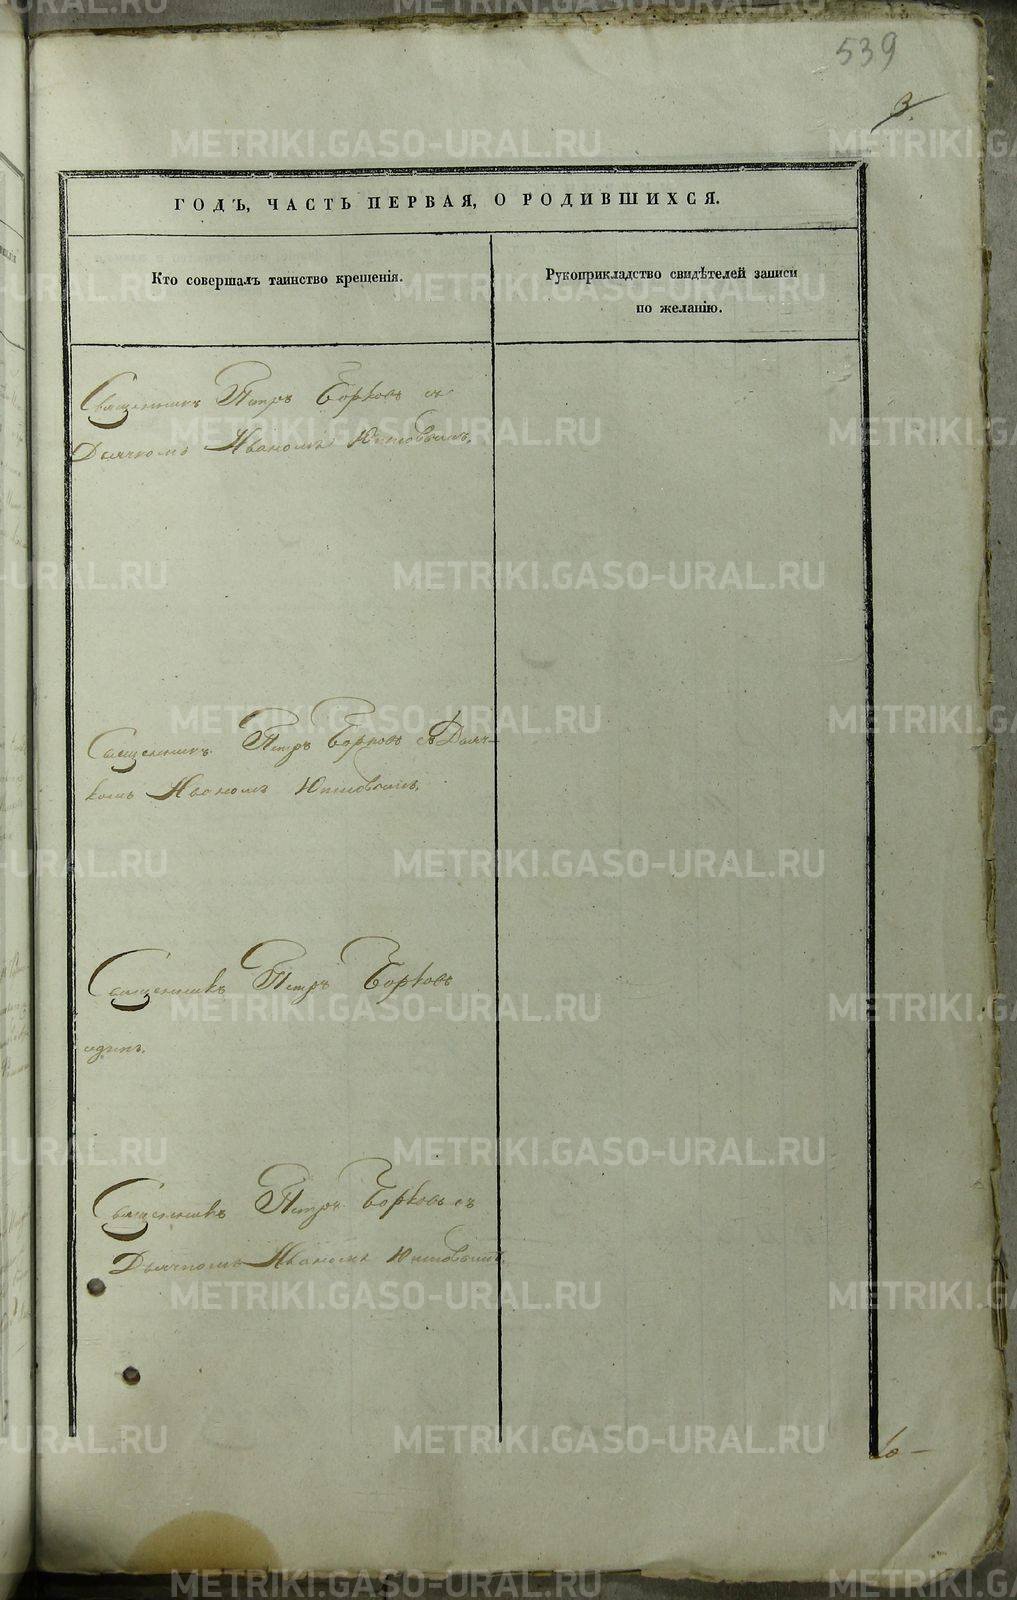 539
3.
ГОДЪ, ЧАСТЬ ПЕРВАЯ, О РОДИВШИХСЯ.
Кто совершалъ таинство крещенія.
Рукоприкладство свидѣтелей записи
по желанію.
Священникъ Петръ Борковъ съ
Дьячкомъ Иваномъ
Священникъ Петръ Борковъ съ Дьяч-
комъ Иваномъ
Священникъ Петръ Борковъ
одинъ.
Священникъ Петръ Борковъ съ
Дьячкомъ Иваномъ
METRIKI.GASO-URAL.RU